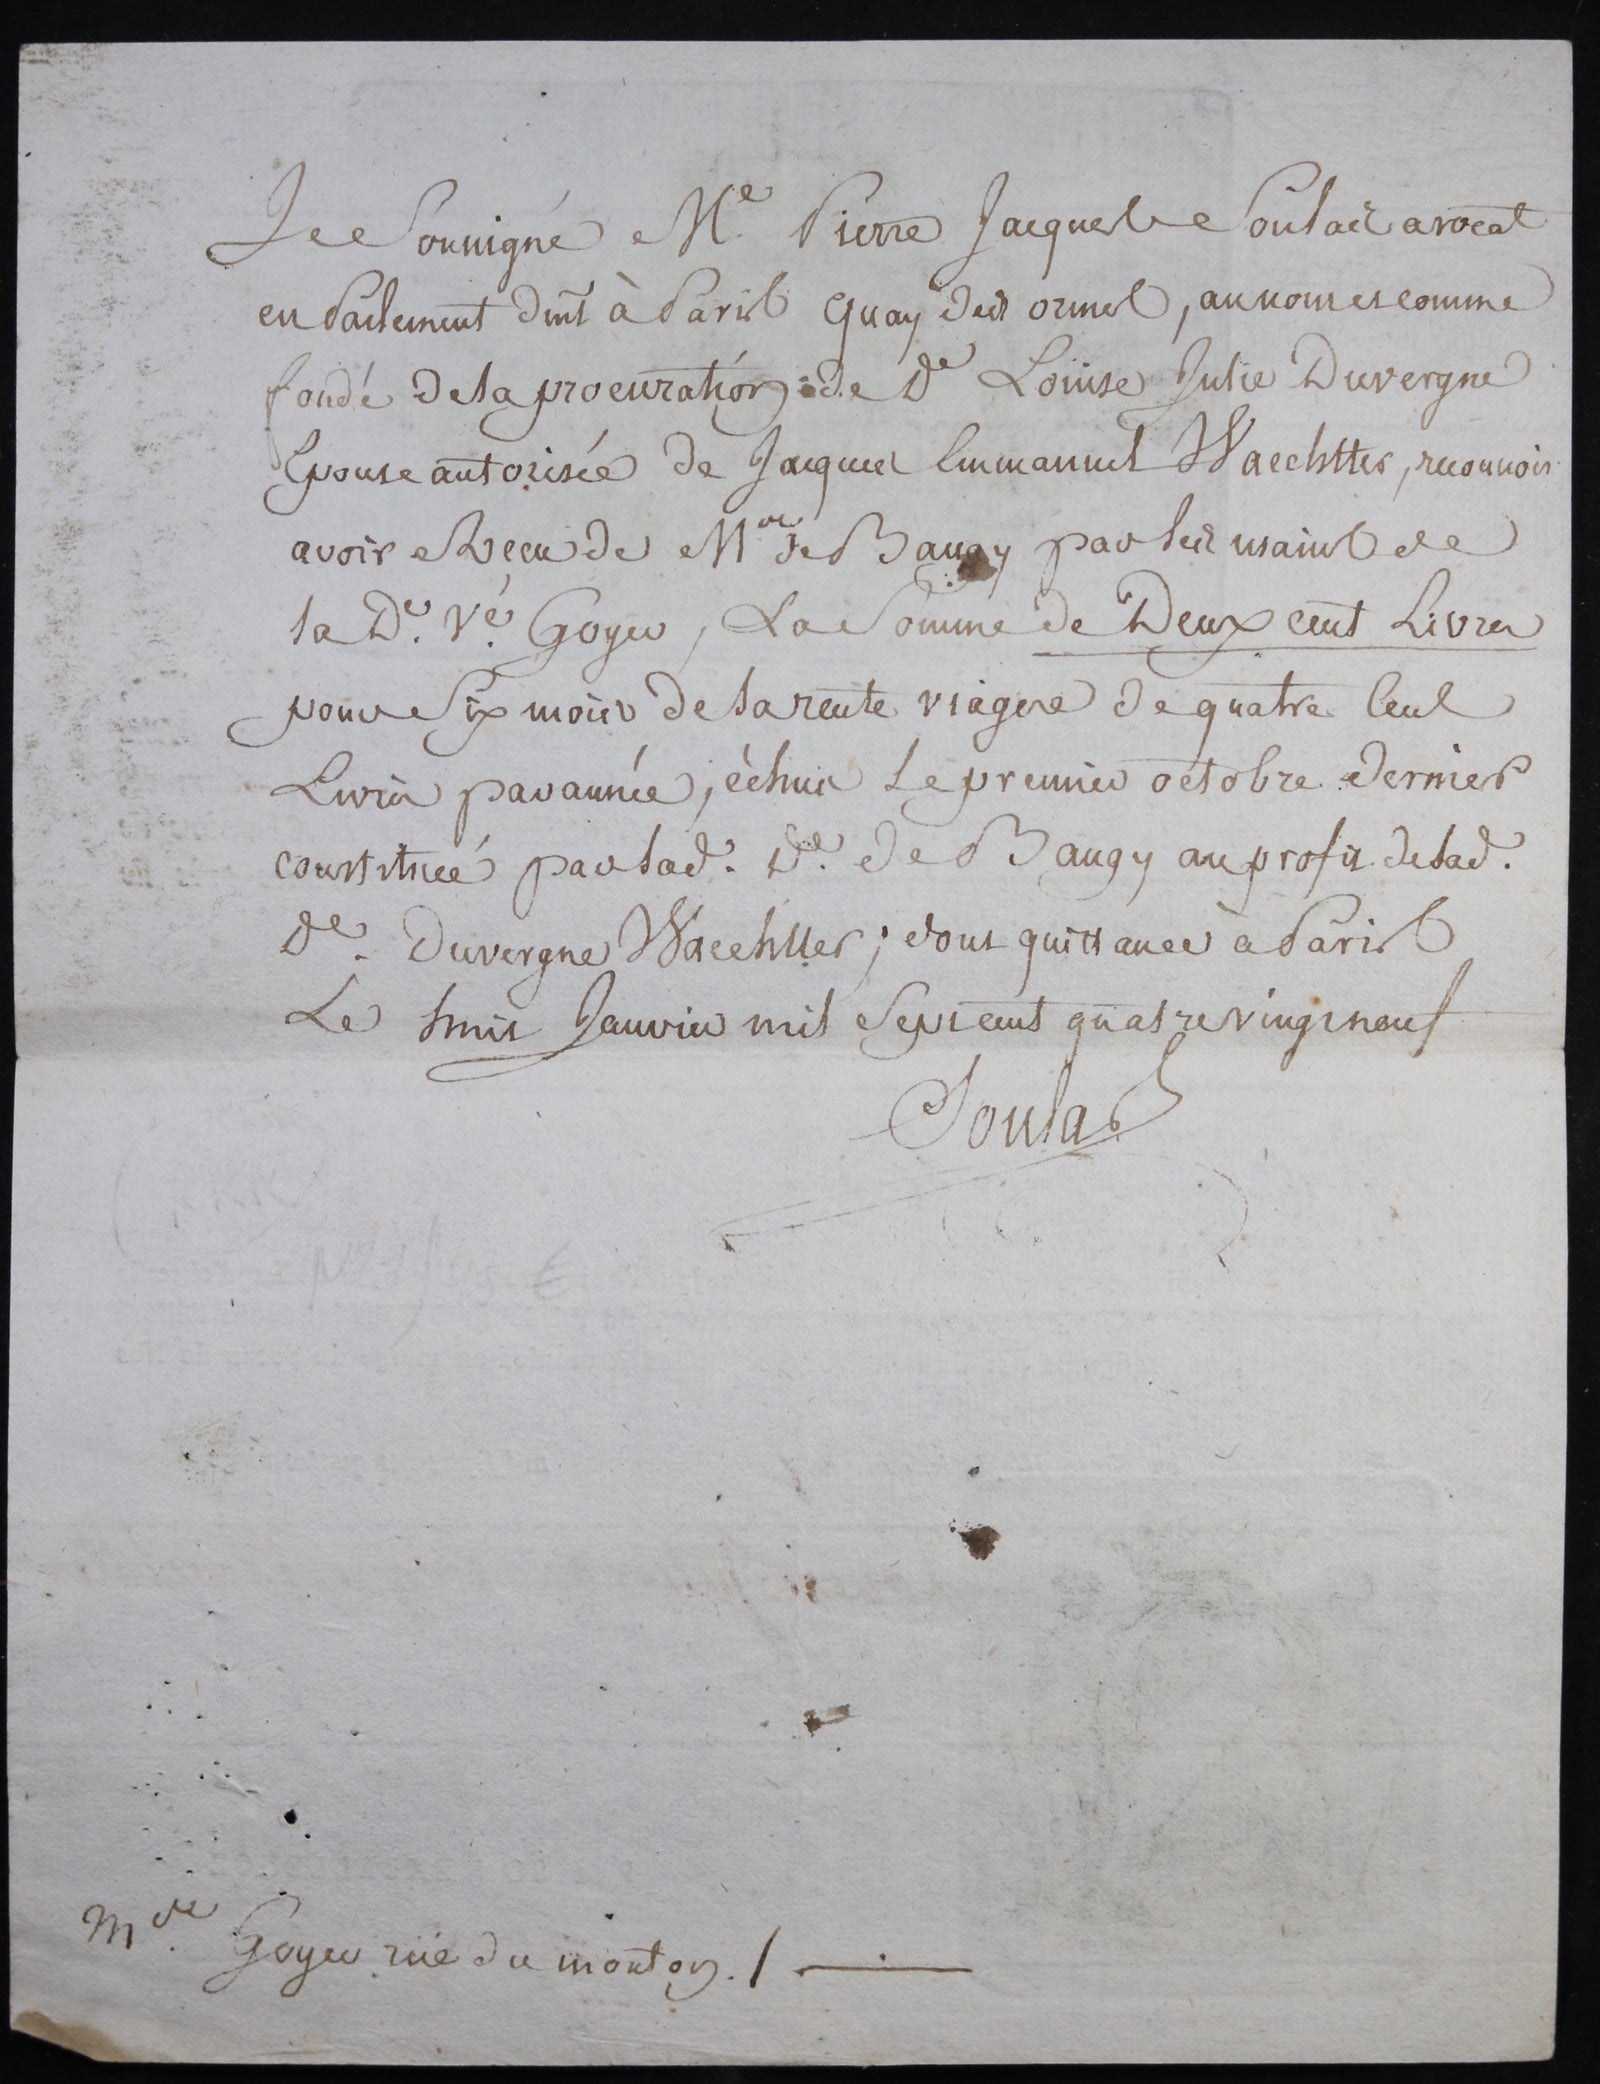 Je Soussigné Me. Pierre Jacques Soulas avocat
en Parlement dmt à Paris quay des ormes, au nom et comme
fondé de la procuration de De Louise Julie Duvergne
Epouse autorisée de Jacques Emmanuel Waechtter, reconnois
avoir Reçu de Mde de Baugy par les mains de
la De. Ve. Goyer, La Somme de Deux cent Livres
pour Six mois de la rente viagere de quatre Cent
Livres par année, échus le premier octobre dernier
constituée par lad. De. de Baugy au profit de lad.
De. Duvergne Waechtter; dont quittance à Paris
Le huit Janvier mil Sept cent quatre vingt neuf
Soulas
Mde. Goyer rue du mouton. /